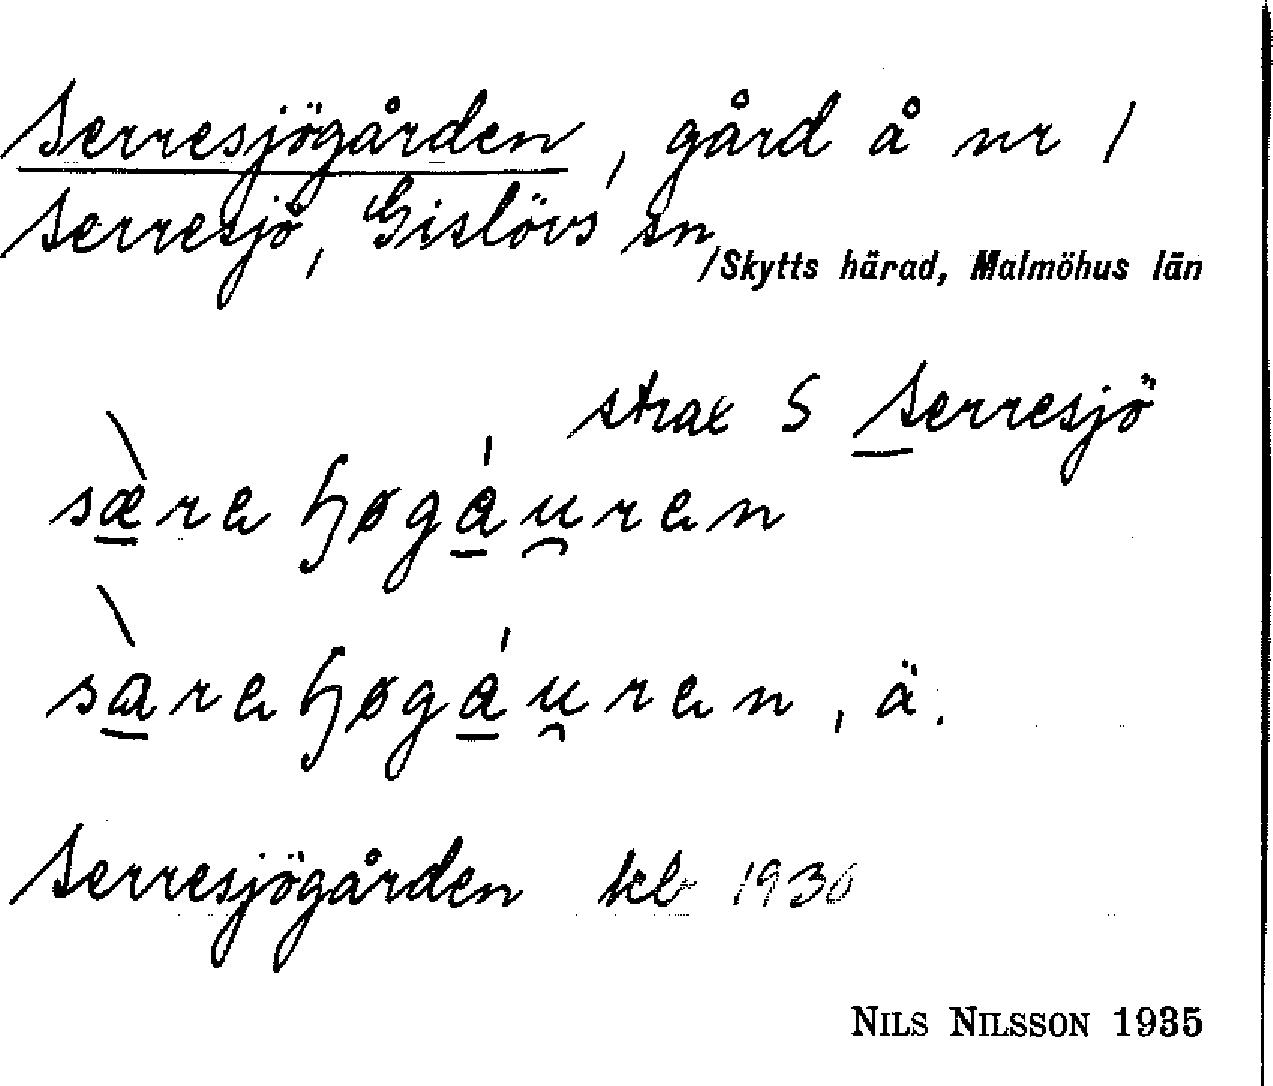 Serresjögården, gård å nr 1
Serresjö, Gislövs sn
/Skytts härad, Malmöhus län
strax S Serresjö
Serresjögården kb 1930
NILS NILSSON 1935